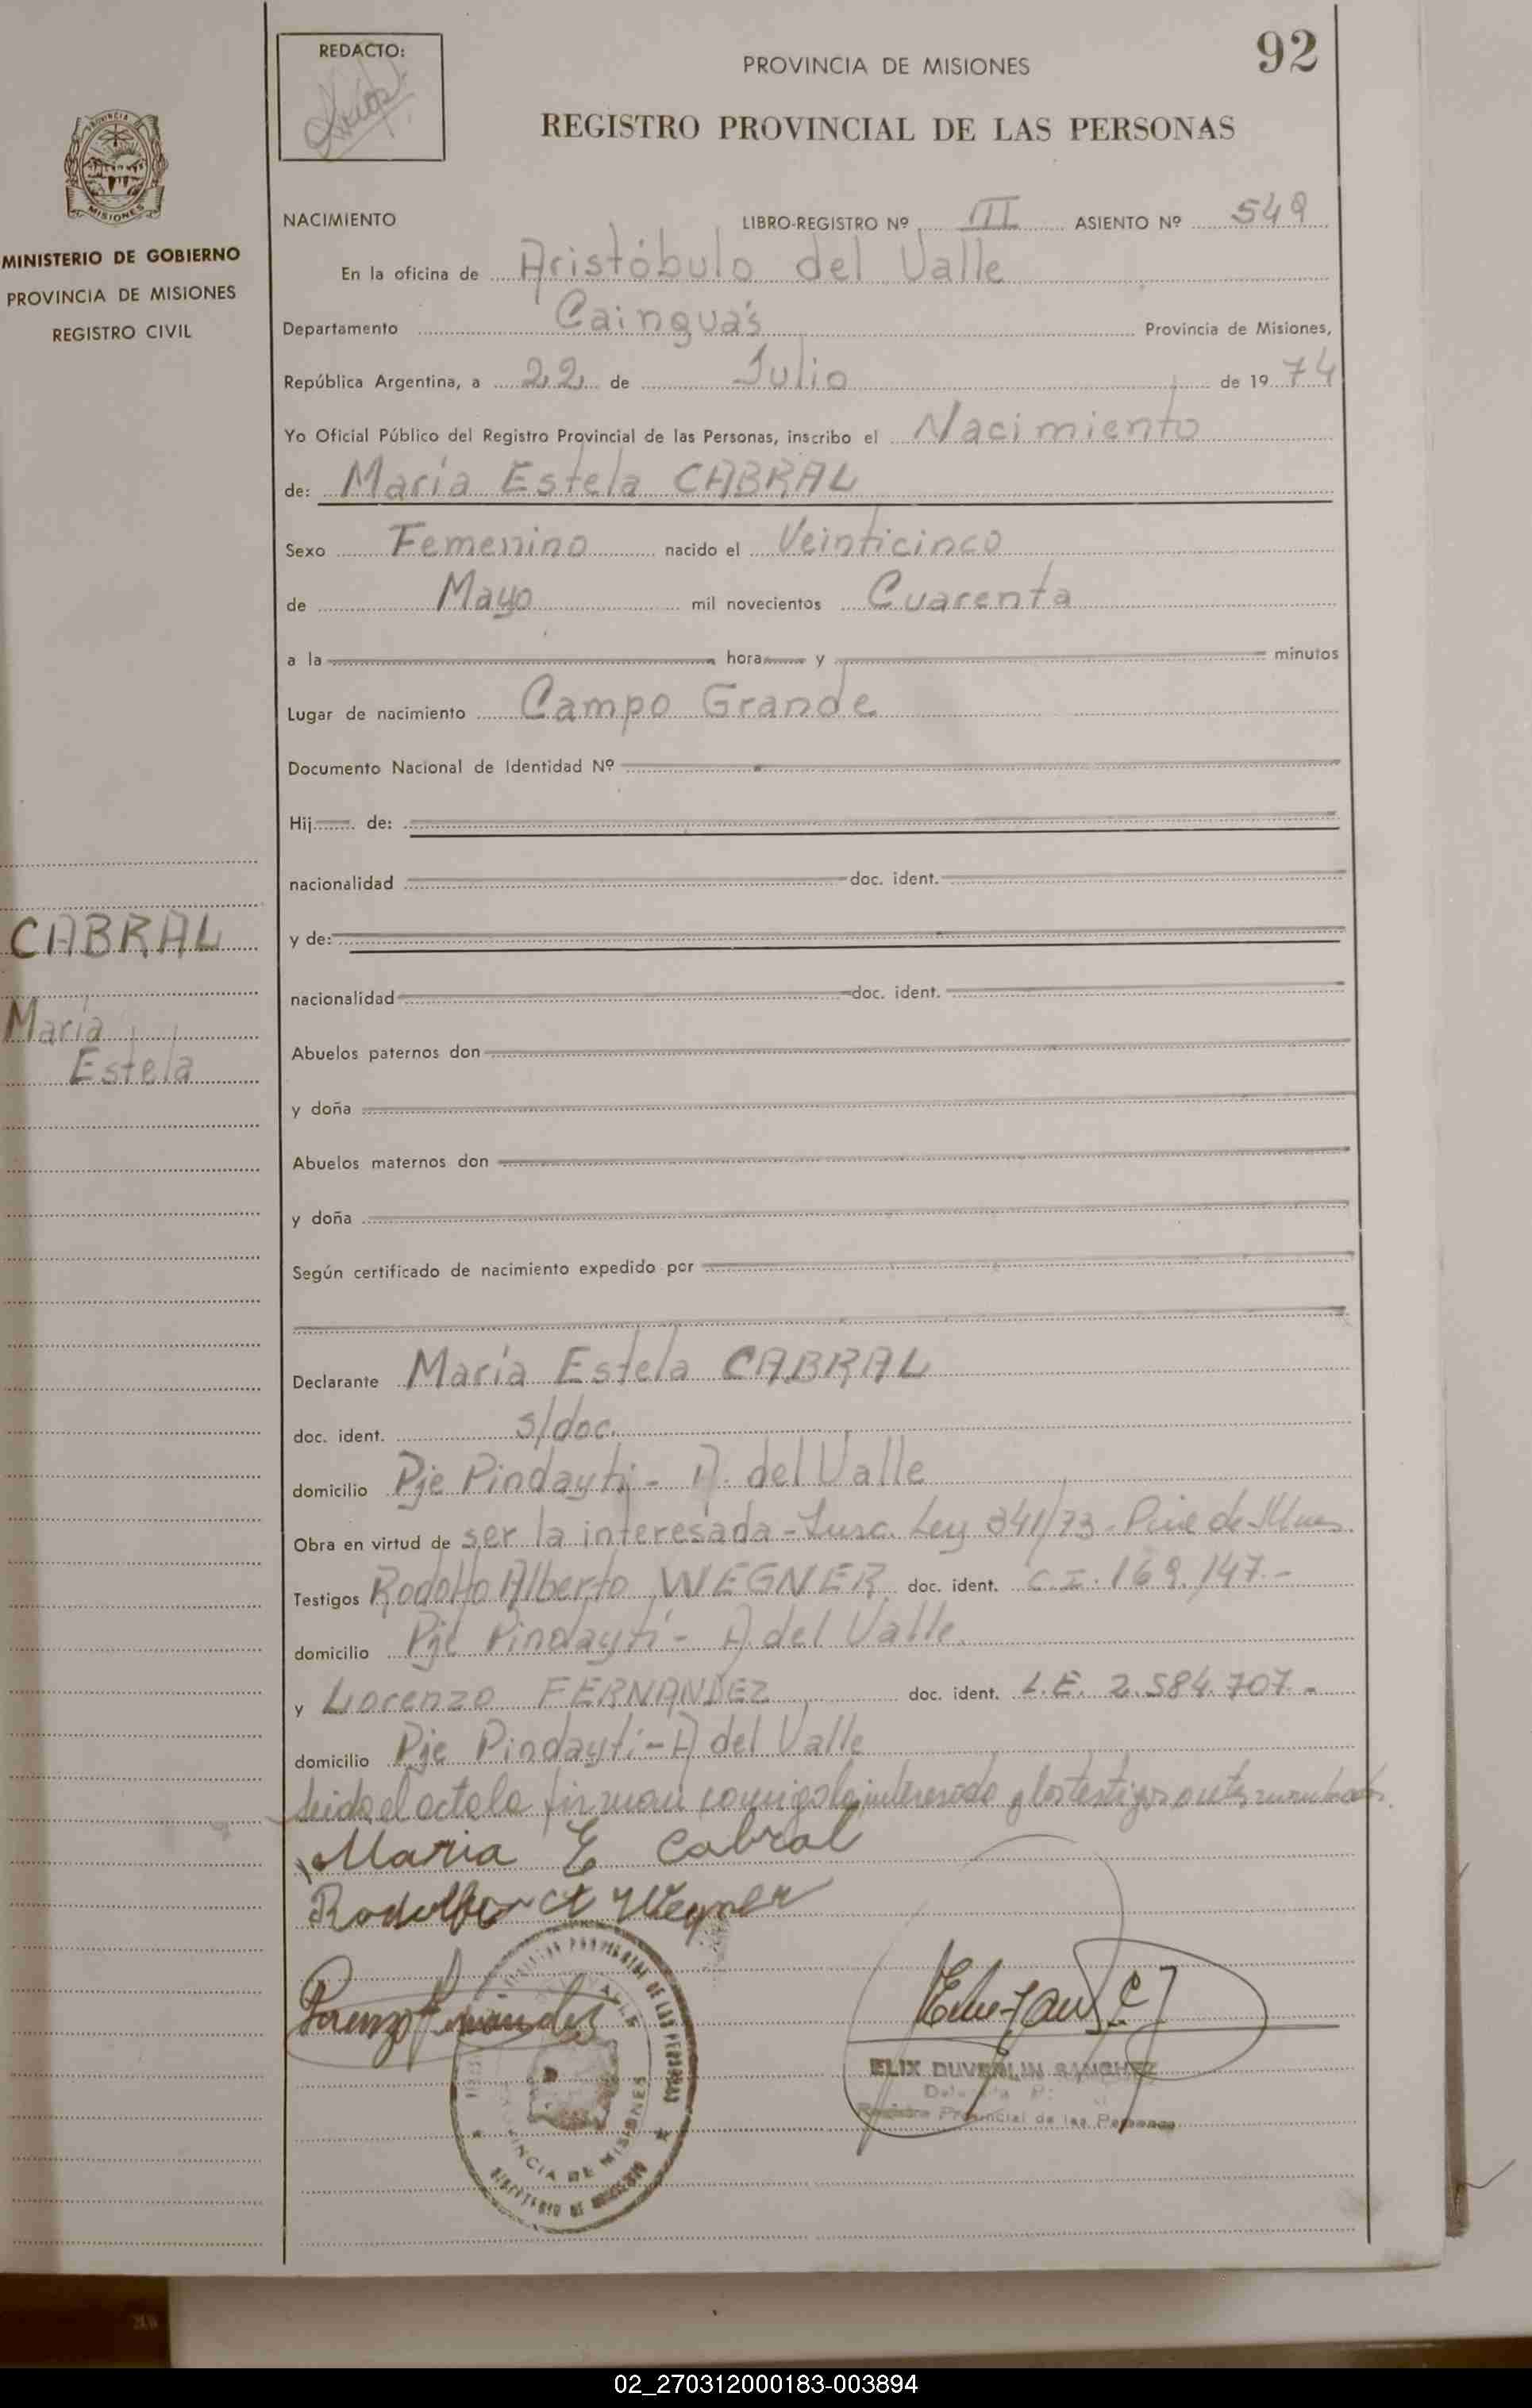 REDACTO:
PROVINCIA DE MISIONES
92
REGISTRO PROVINCIAL DE LAS PERSONAS
PROVINCIA
MISIONES
MINISTERIO DE GOBIERNO
PROVINCIA DE MISIONES
REGISTRO CIVIL
NACIMIENTO LIBRO-REGISTRO Nº III ASIENTO Nº 549
En la oficina de Aristóbulo del Valle
Departamento Cainguás Provincia de Misiones,
República Argentina, a 22 de Julio de 1974
Yo Oficial Público del Registro Provincial de las Personas, inscribo el Nacimiento
de: María Estela CABRAL
Sexo Femenino nacido el Veinticinco
de Mayo mil novecientos Cuarenta
a la hora y minutos
Lugar de nacimiento Campo Grande
Documento Nacional de Identidad Nº
Hij de:
nacionalidad doc. ident.
CABRAL
y de:
nacionalidad doc. ident.
María
Estela
Abuelos paternos don
y doña
Abuelos maternos don
y doña
Según certificado de nacimiento expedido por
Declarante María Estela CABRAL
doc. ident. s/doc.
domicilio Pje Pindaytí - A. del Valle
Obra en virtud de ser la interesada - Insc. Ley 341/73 - de
Testigos Rodolfo Alberto WEGNER doc. ident. C.I. 169.147.-
domicilio Pje Pindaytí - A. del Valle
y Lorenzo FERNANDEZ doc. ident. L.E. 2.584.707.-
domicilio Pje Pindaytí - A del Valle
Leida el acta la firman conmigo la interesada y los testigos
Maria E Cabral
Rodolfo A Wegner
Lorenzo Fernandez
PROVINCIA DE MISIONES
ELIX DUVERLIN SANCHEZ
Registro Provincial de las Personas
02_270312000183-003894